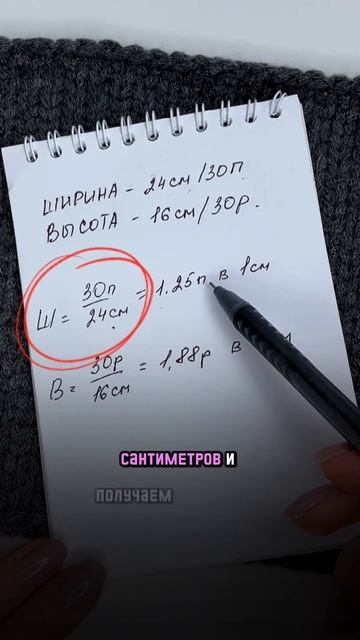 ШИРИНА - 24см/30п.
ВЫСОТА - 16см/30р.
Ш = 30п/24см = 1,25п в 1см
В = 30р/16см = 1,88р в
сантиметров и
получаем